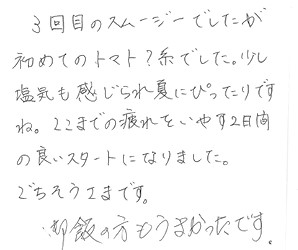 3回目のスムージーでしたが
初めてのトマト？系でした。少し
塩気も感じられ夏にぴったりです
ね。ここまでの疲れをいやす2日間
の良いスタートになりました。
ごちそうさまです。
御飯の方もうまかったです。